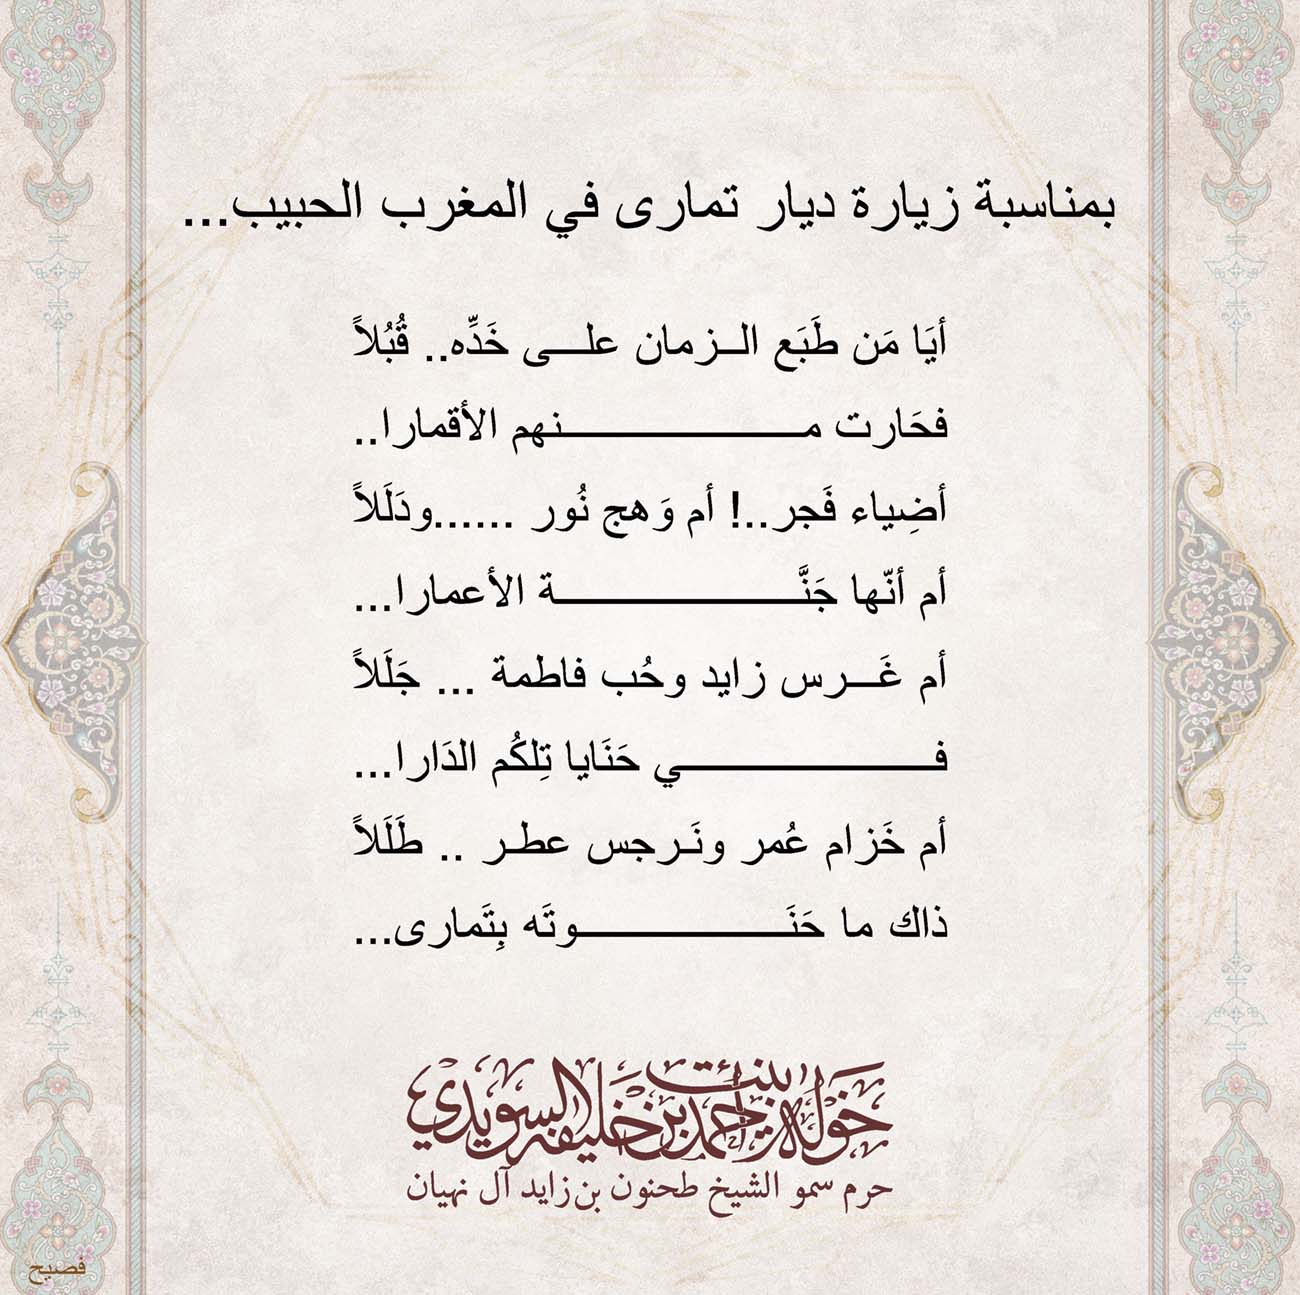 بمناسبة زيارة ديار تمارى في المغرب الحبيب...
أيَا مَن طَبَع الــزمان علـــى خَدِّه.. قُبُلاً
فحَارت مـــــــــــــــــنهم الأقمارا..
أضِياء فَجر..! أم وَهج نُور ......ودَلَلاً
أم أنّها جَنَّـــــــــــــــــة الأعمارا...
أم غَـــرس زايد وحُب فاطمة ... جَلَلاً
فـــــــــــــــــي حَنَايا تِلكُم الدَارا...
أم خَزام عُمر ونَـرجس عطـر .. طَلَلاً
ذاك ما حَنَـــــــــــــــوتَه بِتَمارى...
خوله بنت احمد بن خليفه السويدي
حرم سمو الشيخ طحنون بن زايد آل نهيان
فصيح